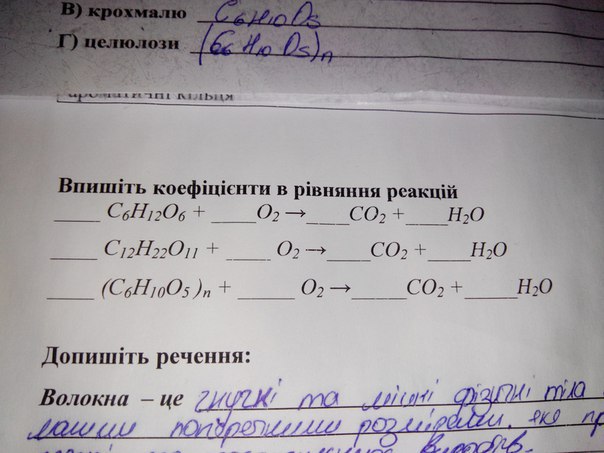 В) крохмалю C6H10O5
Г) целюлози (C6H10O5)n
ароматичні кільця
Впишіть коефіцієнти в рівняння реакцій
____ C6H12O6 + ____O2 →____CO2 +____H2O
____ C12H22O11 + ____ O2→____CO2 + ____H2O
____ (C6H10O5)n + _____ O2→_____CO2 +_____H2O
Допишіть речення:
Волокна – це гнучкі та міцні фізичні тіла
малими поперечними розмірами, яке